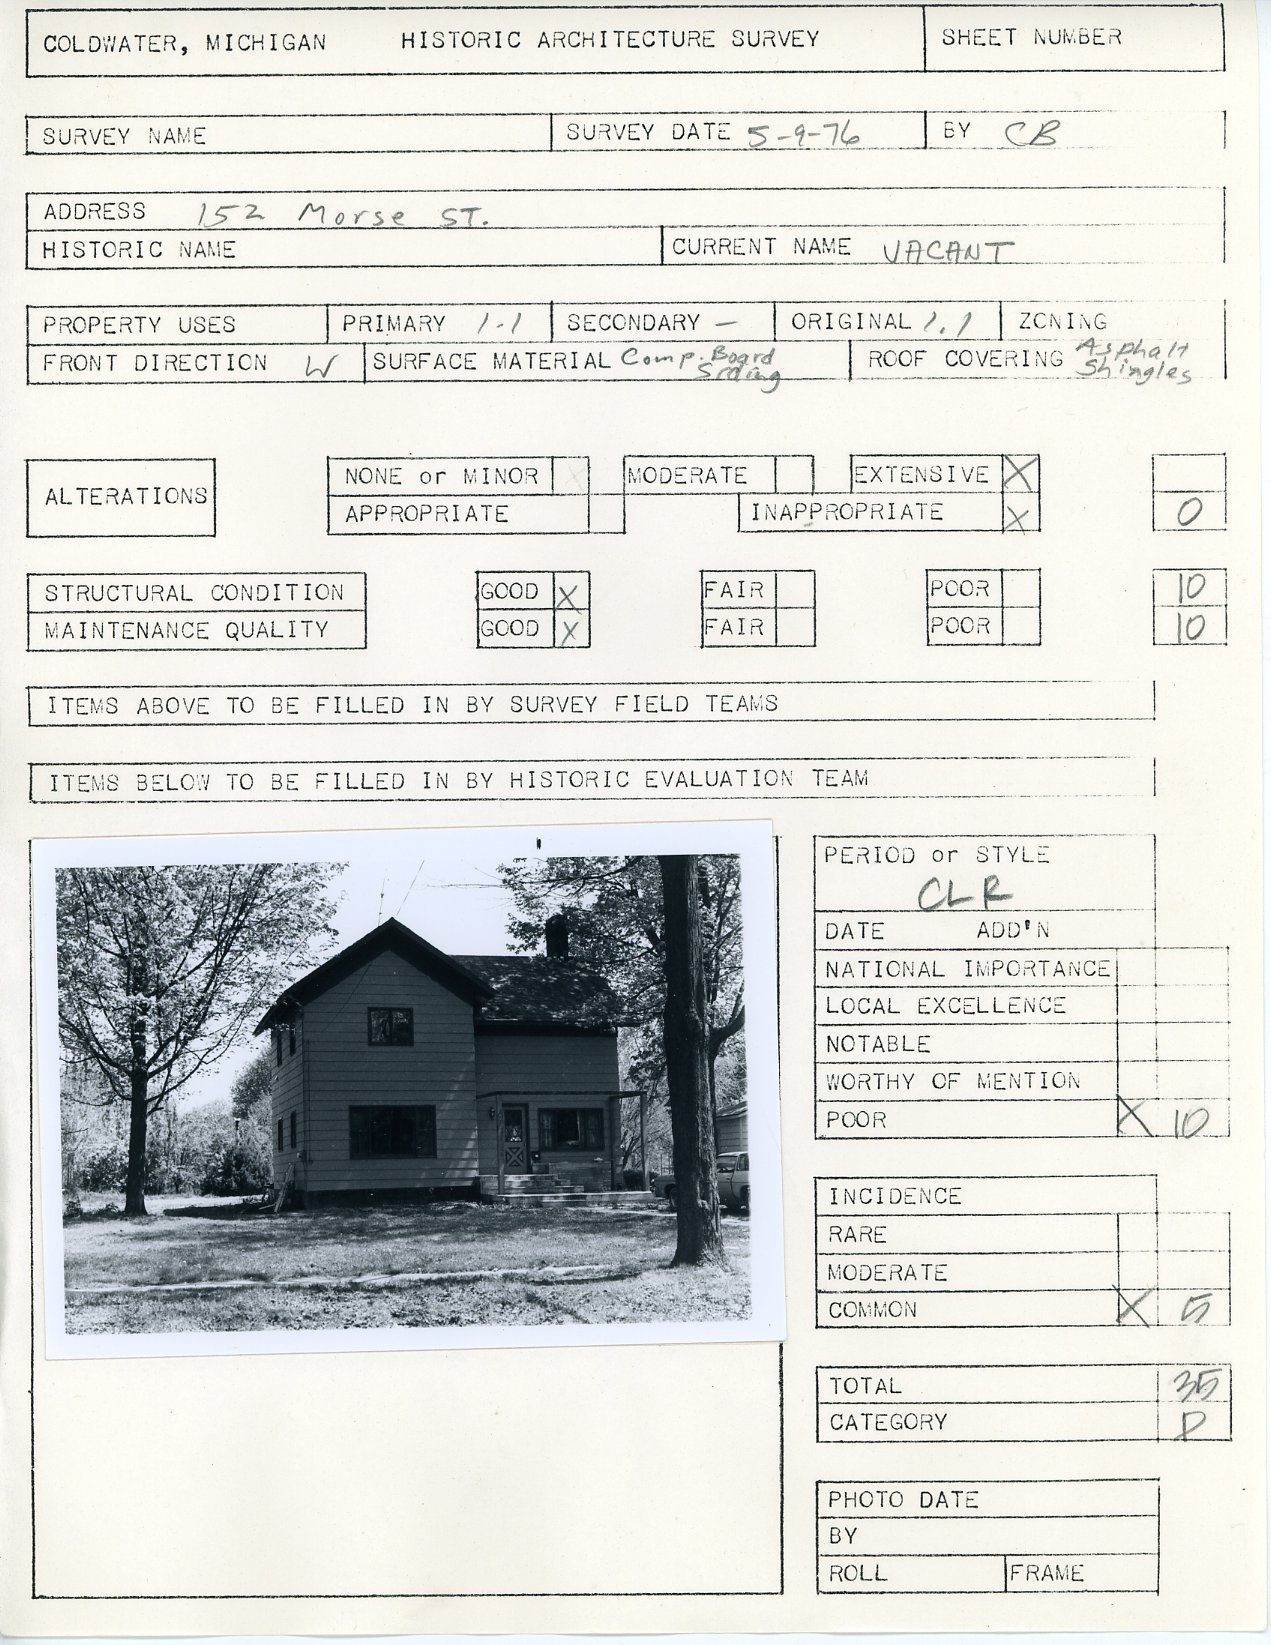 COLDWATER, MICHIGAN HISTORIC ARCHITECTURE SURVEY SHEET NUMBER
SURVEY NAME SURVEY DATE 5-9-76 BY CB
ADDRESS 152 Morse ST.
HISTORIC NAME CURRENT NAME VACANT
PROPERTY USES PRIMARY 1-1 SECONDARY — ORIGINAL 1.1 ZONING
FRONT DIRECTION W SURFACE MATERIAL Comp. Board Siding ROOF COVERING Asphalt Shingles
ALTERATIONS
NONE or MINOR MODERATE EXTENSIVE X
APPROPRIATE INAPPROPRIATE X 0
STRUCTURAL CONDITION GOOD X FAIR POOR 10
MAINTENANCE QUALITY GOOD X FAIR POOR 10
ITEMS ABOVE TO BE FILLED IN BY SURVEY FIELD TEAMS
ITEMS BELOW TO BE FILLED IN BY HISTORIC EVALUATION TEAM
PERIOD or STYLE
CLR
DATE ADD'N
NATIONAL IMPORTANCE
LOCAL EXCELLENCE
NOTABLE
WORTHY OF MENTION
POOR X 10
INCIDENCE
RARE
MODERATE
COMMON X 5
TOTAL 35
CATEGORY D
PHOTO DATE
BY
ROLL FRAME